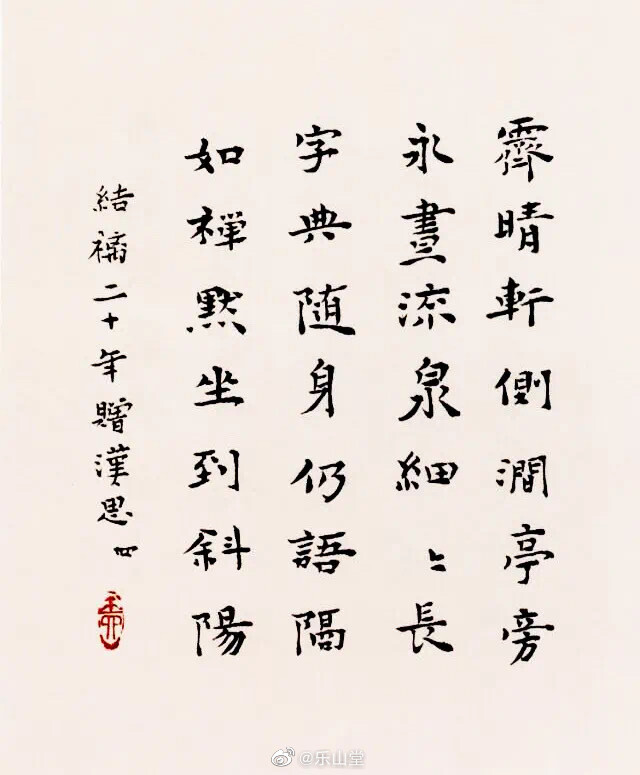 霽晴軒側澗亭旁
永晝流泉細〻長
字典随身仍語隔
如禪默坐到斜陽
結褵二十年贈漢思
@乐山堂